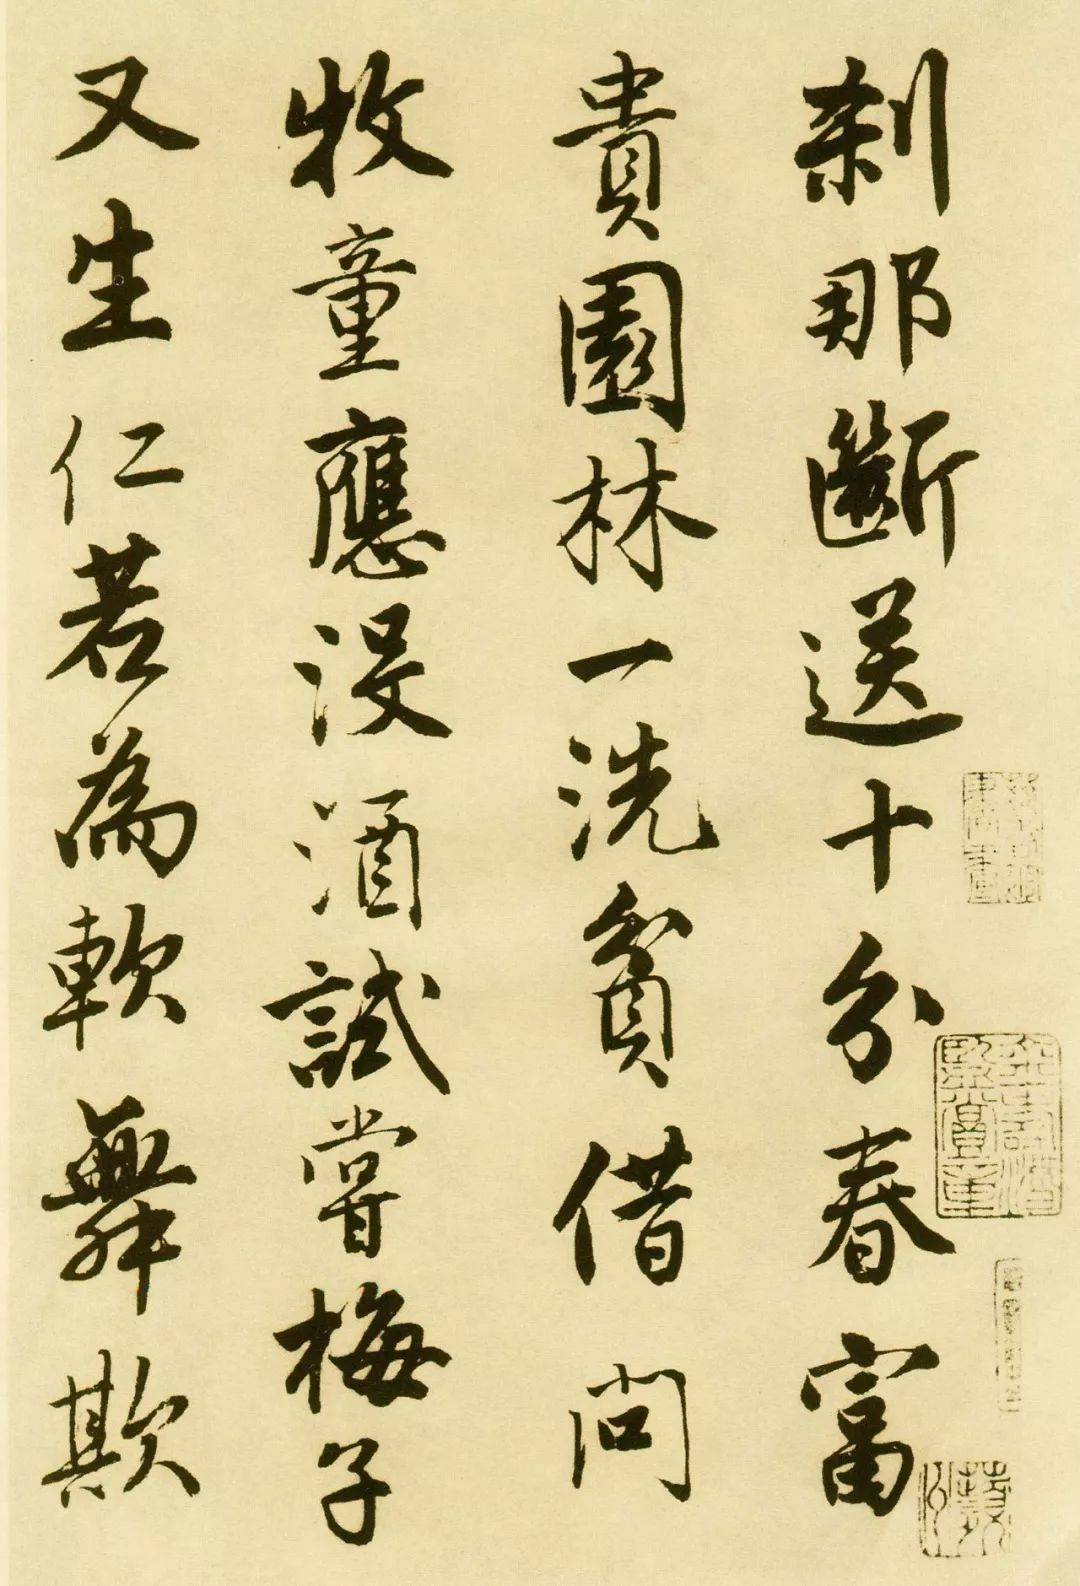 刹那斷送十分春富
貴園林一洗貧借問
牧童應沒酒試嘗梅子
又生仁若為軟舞欺